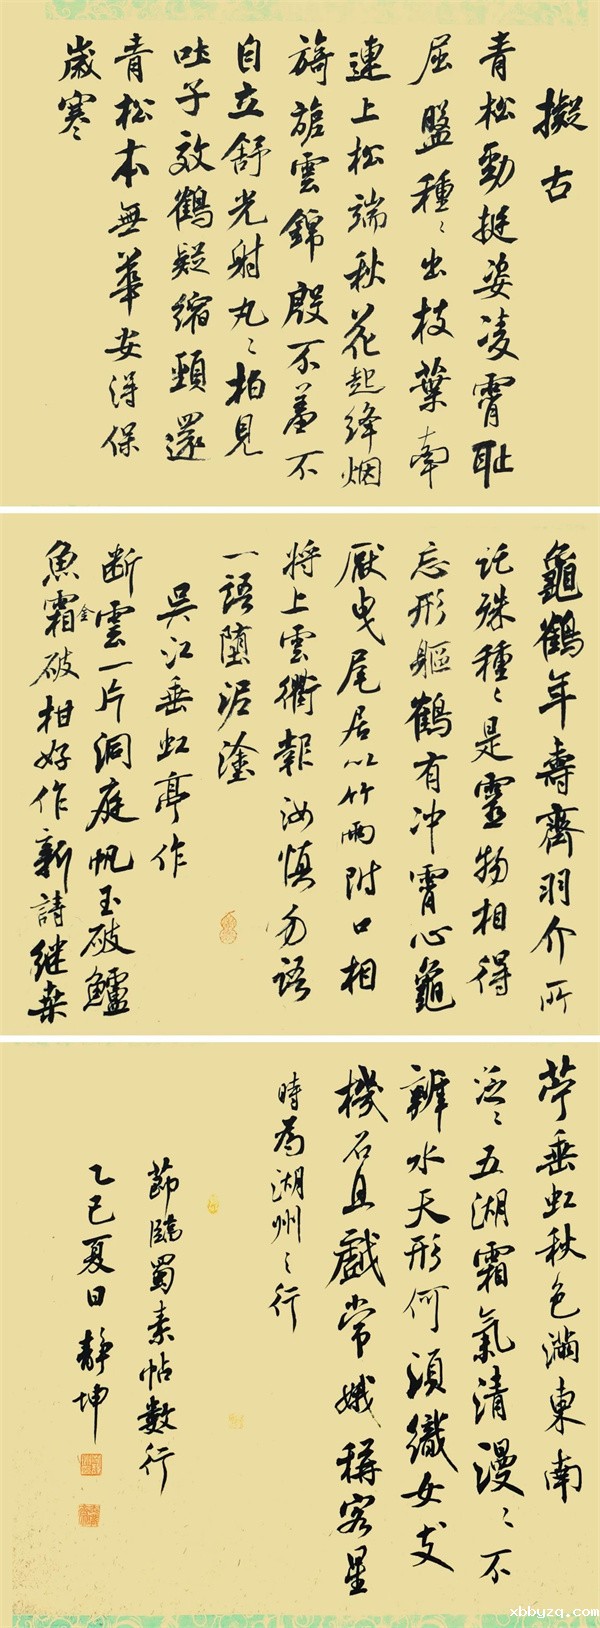 擬古
青松勁挺姿凌霄恥
屈盤種〻出枝葉南
連上松端秋花起絳烟
旖旎雲錦殷不羞不
自立舒光射丸〻柏見
吐子效鶴疑縮頸還
青松本無華安得保
歲寒
龜鶴年壽齊羽介所
託殊種〻是靈物相得
忘形軀鶴有冲霄心龜
厭曳尾居以竹兩附口相
將上雲衢報汝慎勿語
一語墮泥塗
吳江垂虹亭作
断雲一片洞庭帆玉破鱸
魚霜金破柑好作新詩継桑
苧垂虹秋色滿東南
泛〻五湖霜氣清漫〻不
辨水天形何須織女支
機石且戲常娥稱客星
時為湖州〻行
節臨蜀素帖數行
乙巳夏日靜坤
xbbyzq.com